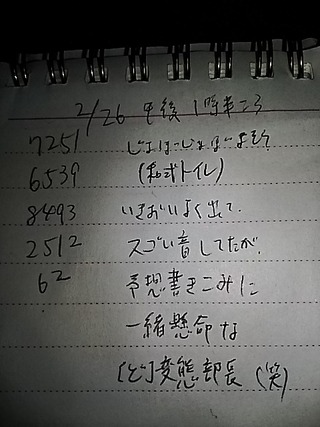 2/26 午後1時半ころ
7251 じょぼじょぼじょぼ
6539 (和式トイレ)
8493 いきおいよく出て、
2512 スゴい音してたが、
62 予想書きこみに
一緒懸命な
[ど]変態部長(笑)